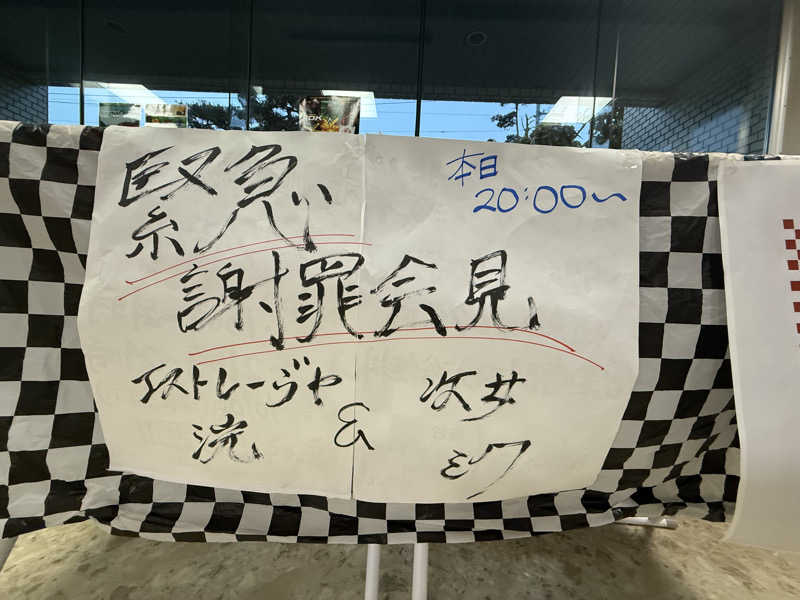 緊急
本日
20:00〜
謝罪会見
エストレージャ
洸
&
次女
ミク